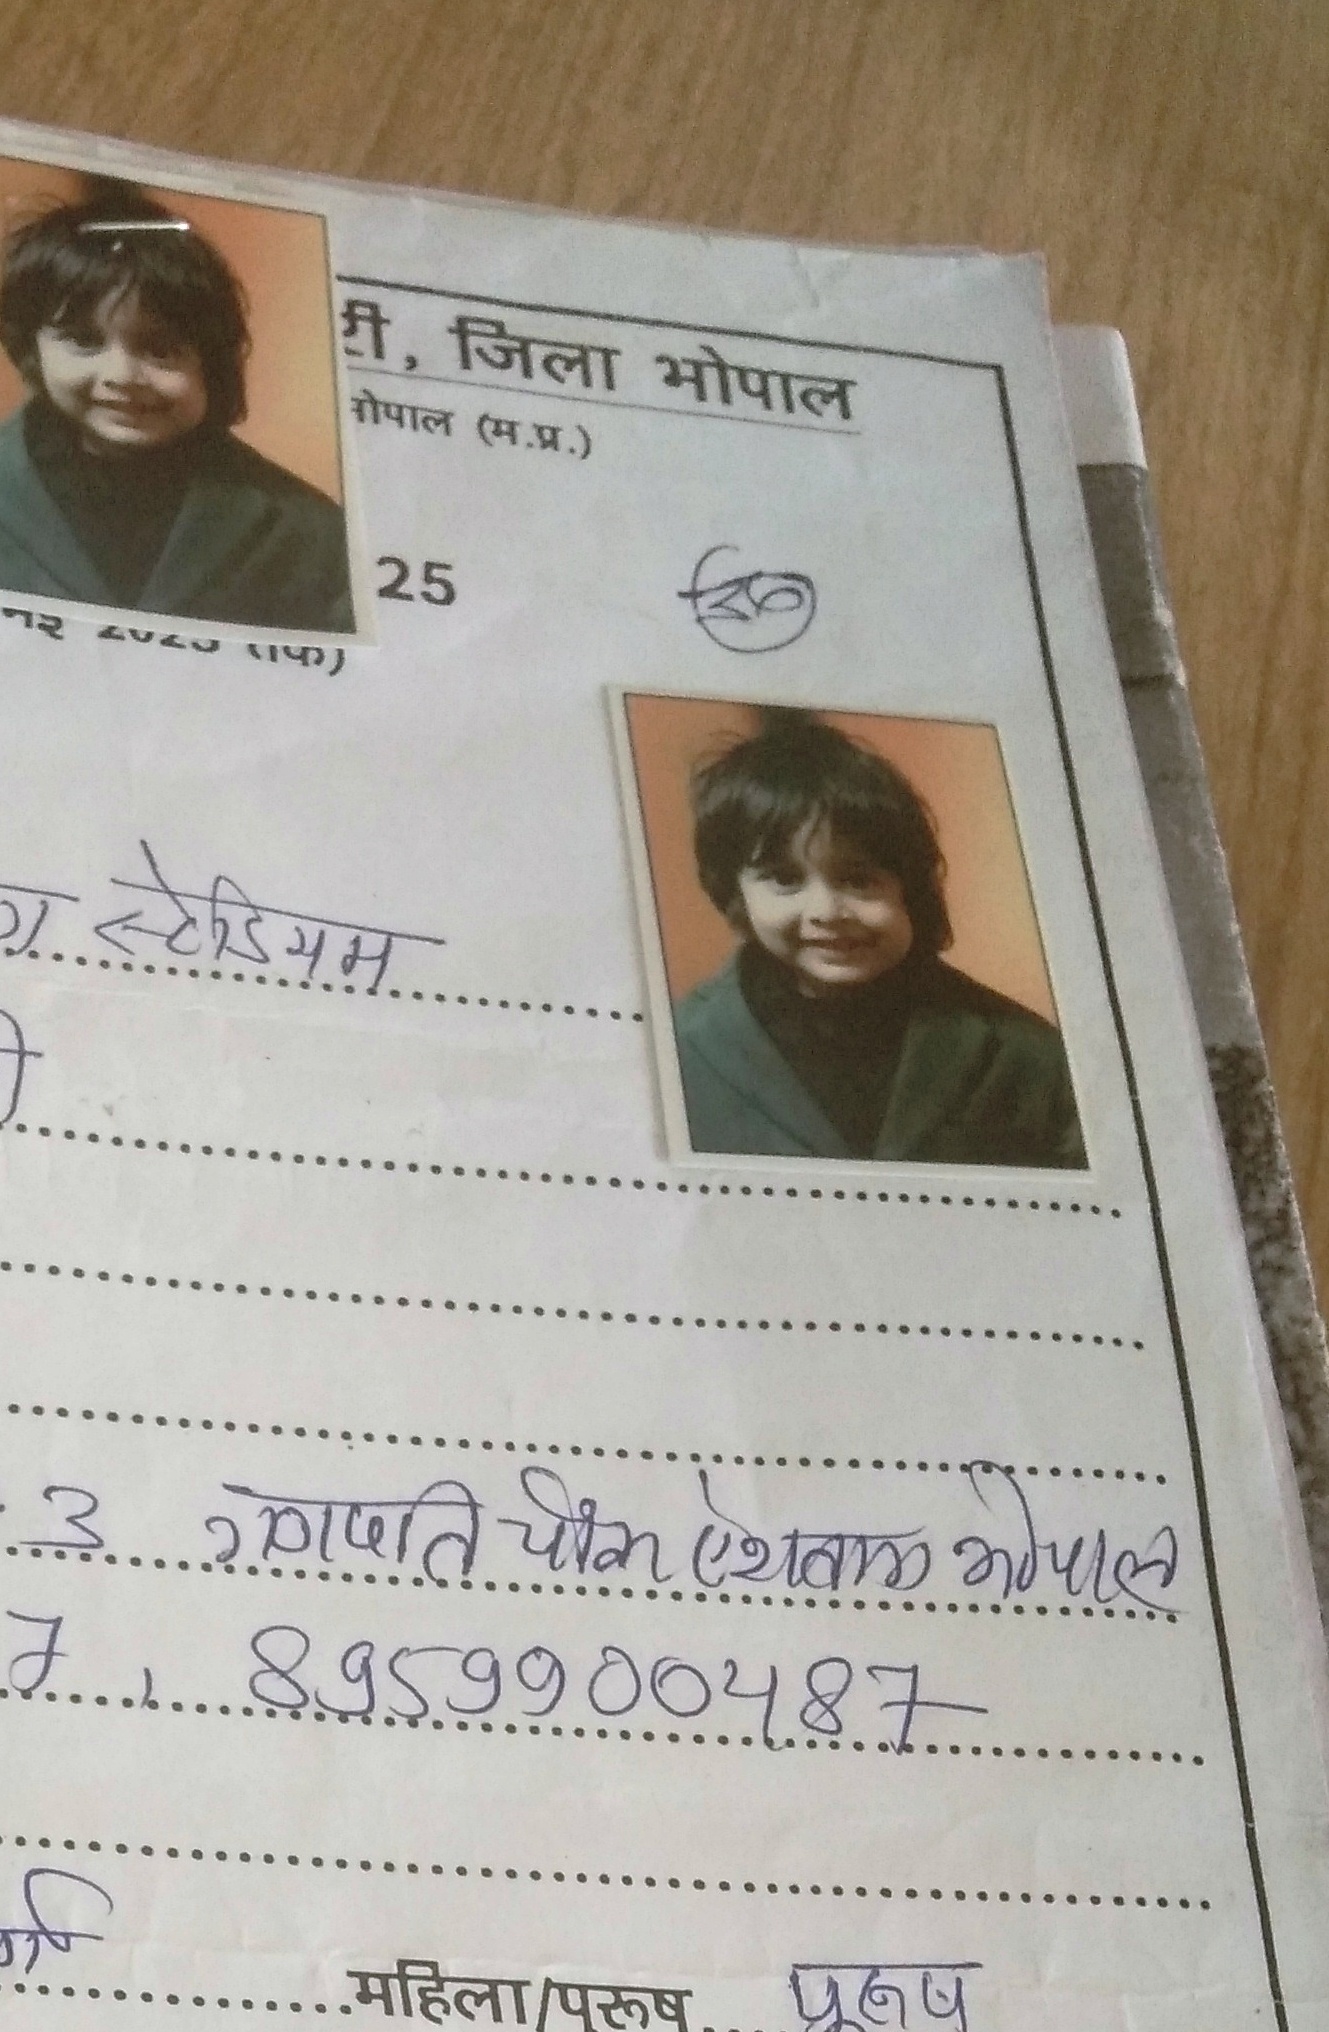 री, जिला भोपाल
भोपाल (म.प्र.)
25
2025 तक)
स्टेडियम
3 गणपति चौक ऐशबाग भोपाल
7, 8959900487
महिला/पुरूष पुरूष